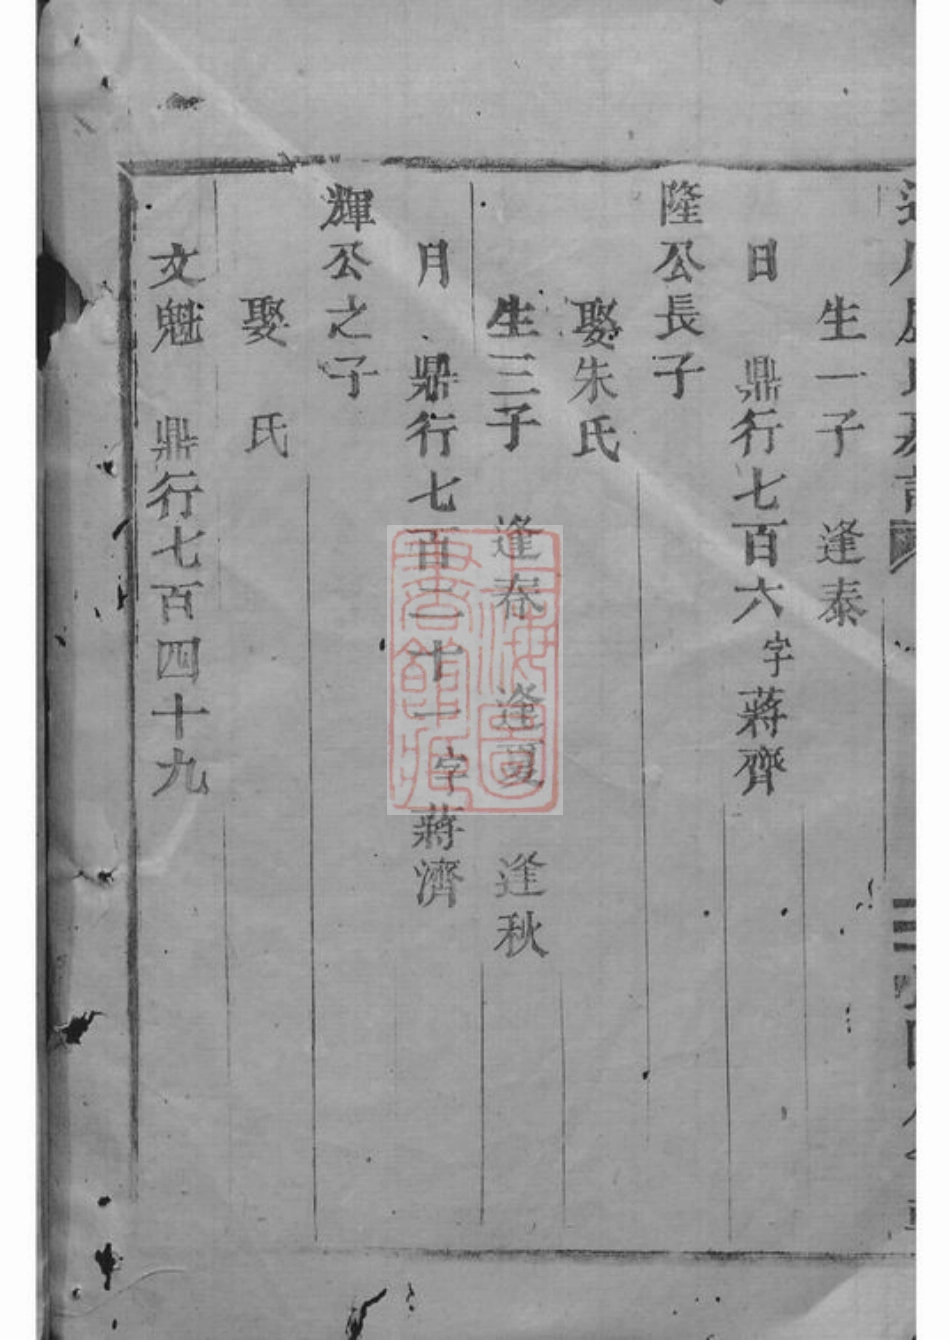 生一子 逢泰
日 鼎行七百六字蔣齊
隆公長子
娶朱氏
生三子 逢春 逢夏 逢秋
月 鼎行七百二十一字蔣濟
輝公之子
娶 氏
文魁 鼎行七百四十九